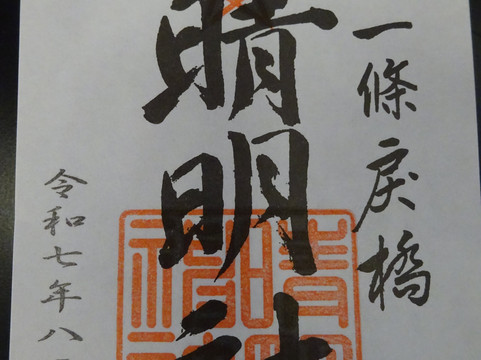 一條戻橋
晴明神
令和七年八